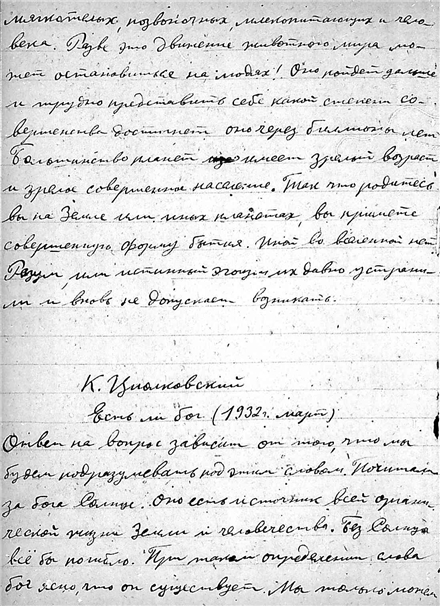 мягкотелых, позвоночных, млекопитающих и чело-
века. Разве это движение животного мира мо-
жет остановиться на людях! Оно пойдет дальше
и трудно представить себе какой степени со-
вершенства достигнет оно через биллионы лет
Большинство планет имеет зрелый возраст
и зрелое совершенное население. Так что родитесь
вы на Земле или иных планетах, вы примете
совершенную форму бытия. Иной во вселенной нет
Разум, или истинный эгоизм их давно устрани-
ли и вновь не допускает возникать.
К. Циолковский
Есть ли бог (1932г. март)
Ответ на вопрос зависит от того, что мы
будем подразумевать под этим словом. Почитали
за бога Солнце. Оно есть источник всей органи-
ческой жизни Земли и человечества. Без Солнца
всё бы погибло. При таком определении слова
бог ясно, что он существует. Мы только можем